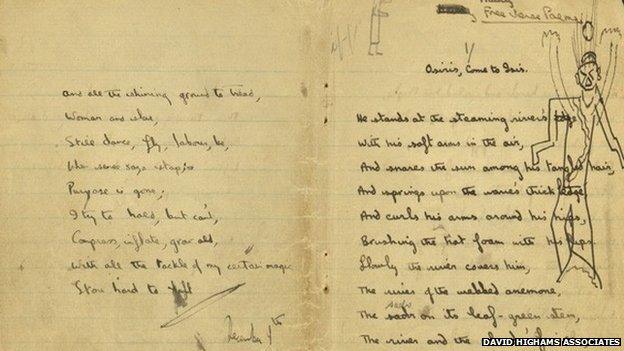 and all the shining ground to tread,
Woman and slave,
Still dance, fly, labour, be,
Who never says 'stop'.
Purpose is gone;
I try to hold, but can't,
Compress, inflate, grow old,
With all the tackle of my certain magic
Stone hard to
December 9th
Free Verse Poems
Osiris, Come to Isis.
He stands at the steaming river's edge
With his soft arms in the air,
And snares the sun among his tangled hair,
And springs upon the wave's thick ledge
And curls his arms around his hips,
Brushing the hot foam with his lips.
Slowly the river covers him,
The river of the webbed anemone,
The sads on its leaf-green stem,
The river and the
DAVID HIGHAMS ASSOCIATES